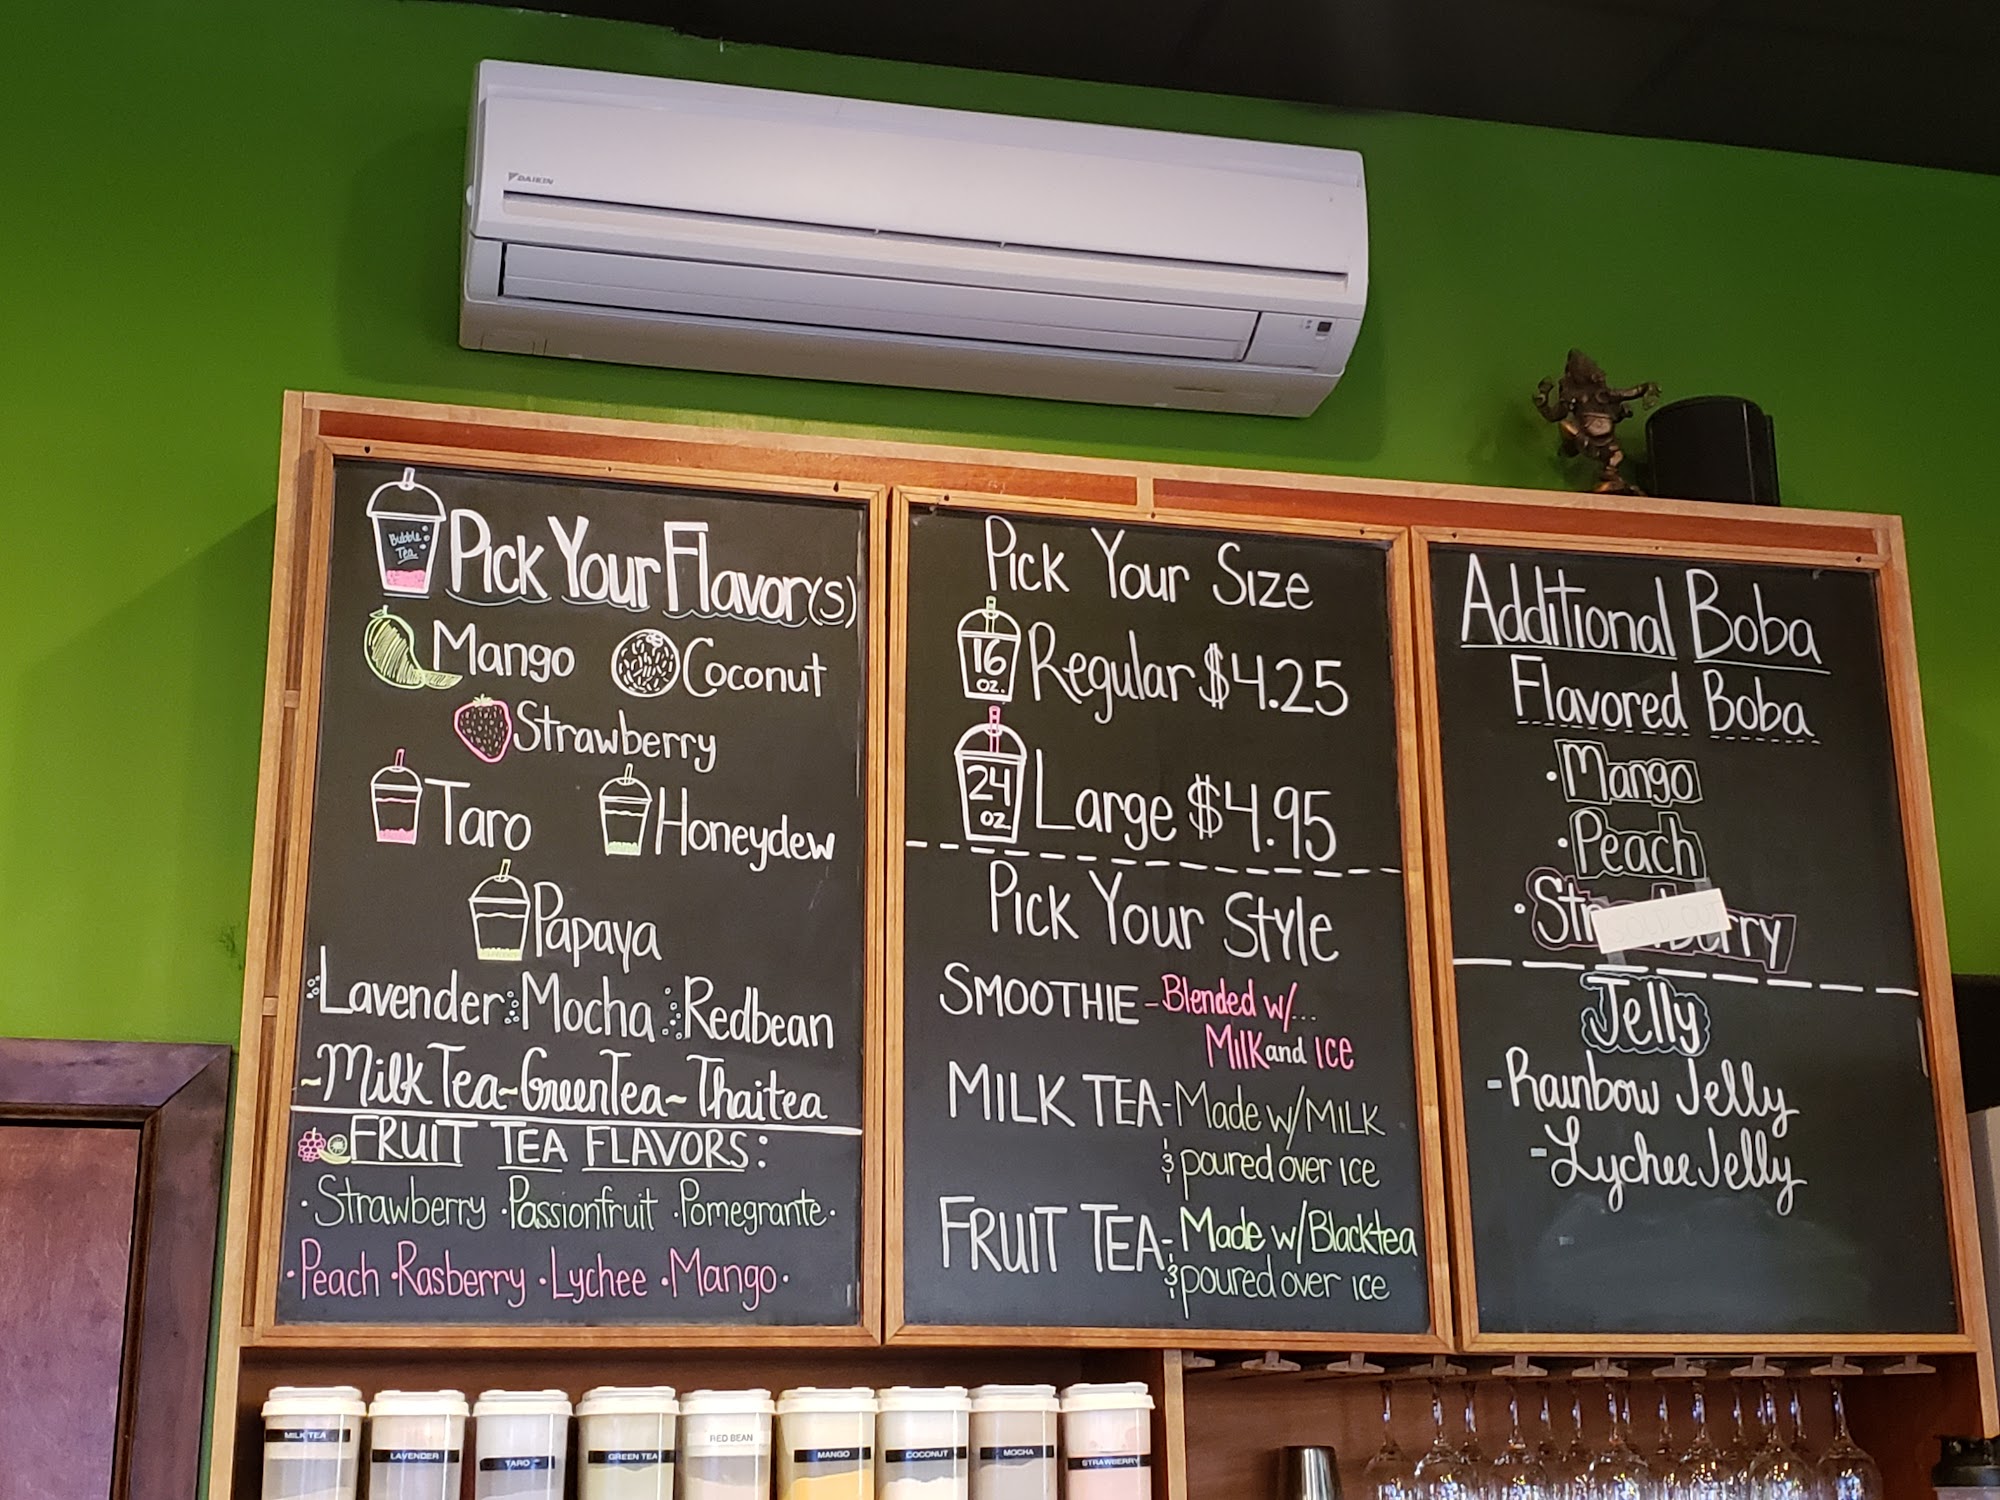 DAIKIN
Bubble
Tea
Pick Your Flavor(s)
Mango Coconut
Strawberry
Taro Honeydew
Papaya
Lavender Mocha Redbean
~Milk Tea~Green Tea~Thai tea
FRUIT TEA FLAVORS:
·Strawberry ·Passionfruit ·Pomegrante·
·Peach ·Rasberry ·Lychee ·Mango·
Pick Your Size
16 oz. Regular $4.25
24 oz. Large $4.95
Pick Your Style
SMOOTHIE - Blended w/...
Milk and ICE
MILK TEA - Made w/MILK
& poured over ice
FRUIT TEA - Made w/Blacktea
& poured over ice
Additional Boba
Flavored Boba
·Mango
·Peach
·Strawberry
SOLD OUT
Jelly
-Rainbow Jelly
-Lychee Jelly
MILK TEA
LAVENDER
TARO
GREEN TEA
RED BEAN
MANGO
COCONUT
MOCHA
STRAWBERRY